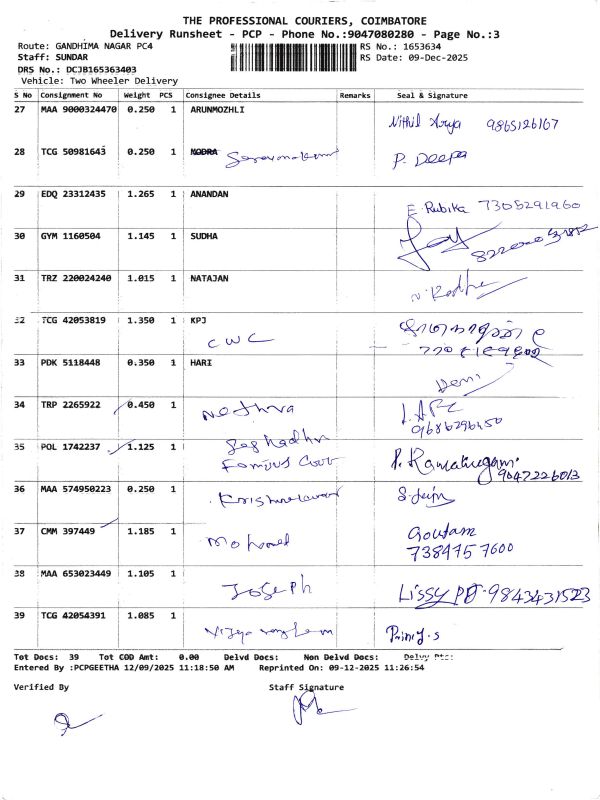 THE PROFESSIONAL COURIERS, COIMBATORE
Delivery Runsheet - PCP - Phone No.:9047080280 - Page No.:3
Route: GANDHIMA NAGAR PC4 RS No.: 1653634
Staff: SUNDAR RS Date: 09-Dec-2025
DRS No.: DCJB165363403
Vehicle: Two Wheeler Delivery
S No Consignment No Weight PCS Consignee Details Remarks Seal & Signature
27 MAA 9000324470 0.250 1 ARUNMOZHLI
Nithil Arya 9865126167
28 TCG 50981643 0.250 1 NODRA
P. Deepa
29 EDQ 23312435 1.265 1 ANANDAN
E. Rubika 7305291960
30 GYM 1160504 1.145 1 SUDHA
31 TRZ 220024240 1.015 1 NATAJAN
32 TCG 42053819 1.350 1 KPJ
CWC
33 PDK 5118448 0.350 1 HARI
34 TRP 2265922 0.450 1 Nethra
9686296450
35 POL 1742237 1.125 1
P. Ramalingam
9047226013
36 MAA 574950223 0.250 1
37 CMM 397449 1.185 1 Mohamed Goutam
7384757600
38 MAA 653023449 1.105 1 Joseph Lissy PJ - 9843431523
39 TCG 42054391 1.085 1
Tot Docs: 39 Tot COD Amt: 0.00 Delvd Docs: Non Delvd Docs: Delvy Ptc:
Entered By :PCPGEETHA 12/09/2025 11:18:50 AM Reprinted On: 09-12-2025 11:26:54
Verified By Staff Signature